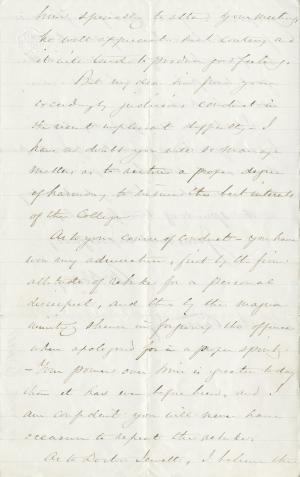 him specially to attend your meeting
he will appreciate such courtesy and
it will tend to promote good feeling.
But my dear sir from your
exceedingly judicious conduct in
the recent unpleasant difficulty, I
have no doubt you will so manage
matters as to restore a proper degree
of harmony to ensure the best interests
of the College.
As to your course of conduct - you have
won my admiration, first by the firm
attitude of rebuke for a personal
disrespect, and then by the magna
nimity shown in forgiving the offence
when apologised for in a proper spirit.
- Your power over him is greater today
than it has ever before been, and I
am confident you will never have
occasion to repeat the rebuke.
As to Doctor Jewett, I believe the